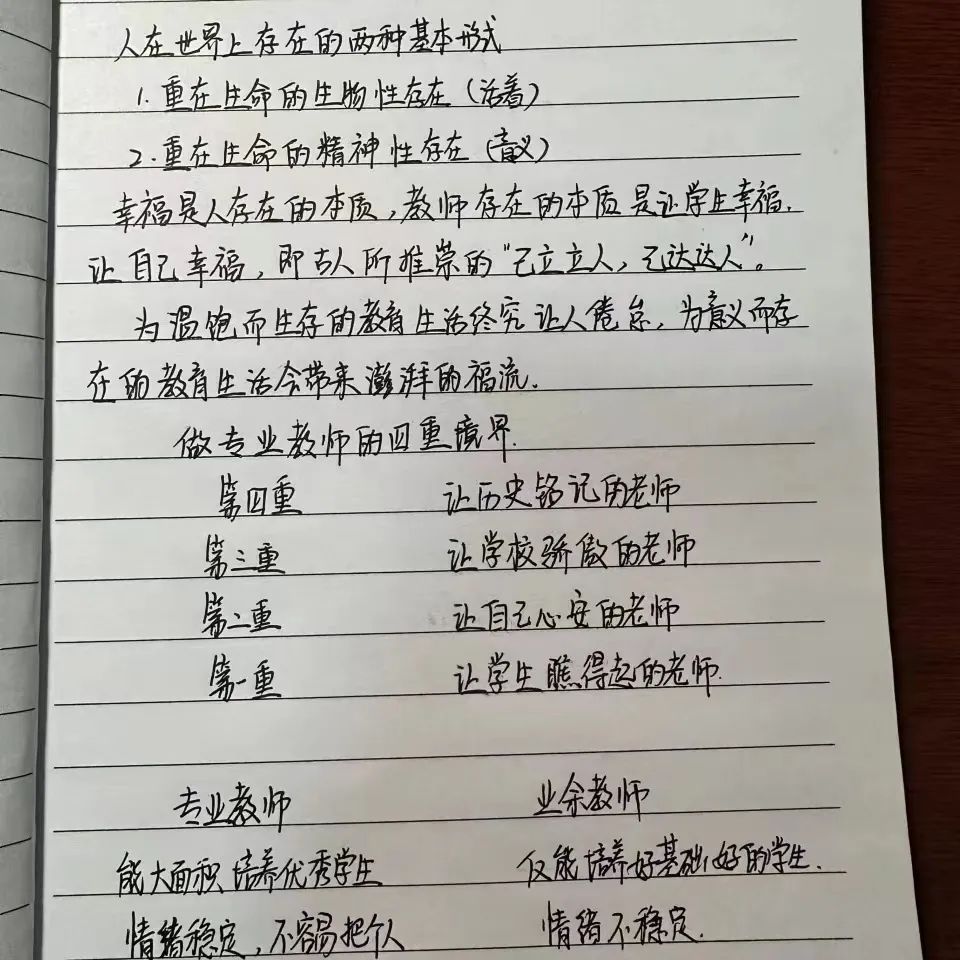 人在世界上存在的两种基本形式
1. 重在生命的生物性存在（活着）
2. 重在生命的精神性存在（意义）
幸福是人存在的本质，教师存在的本质是让学生幸福.
让自己幸福，即古人所推崇的“己立立人，己达达人”。
为温饱而生存的教育生活终究让人倦怠，为意义而存
在的教育生活会带来澎湃的福流.
做专业教师的四重境界.
第四重 让历史铭记的老师
第三重 让学校骄傲的老师
第二重 让自己心安的老师
第一重 让学生瞧得起的老师.
专业教师 业余教师
能大面积培养优秀学生 仅能培养好基础好的学生.
情绪稳定，不容易把个人 情绪不稳定.